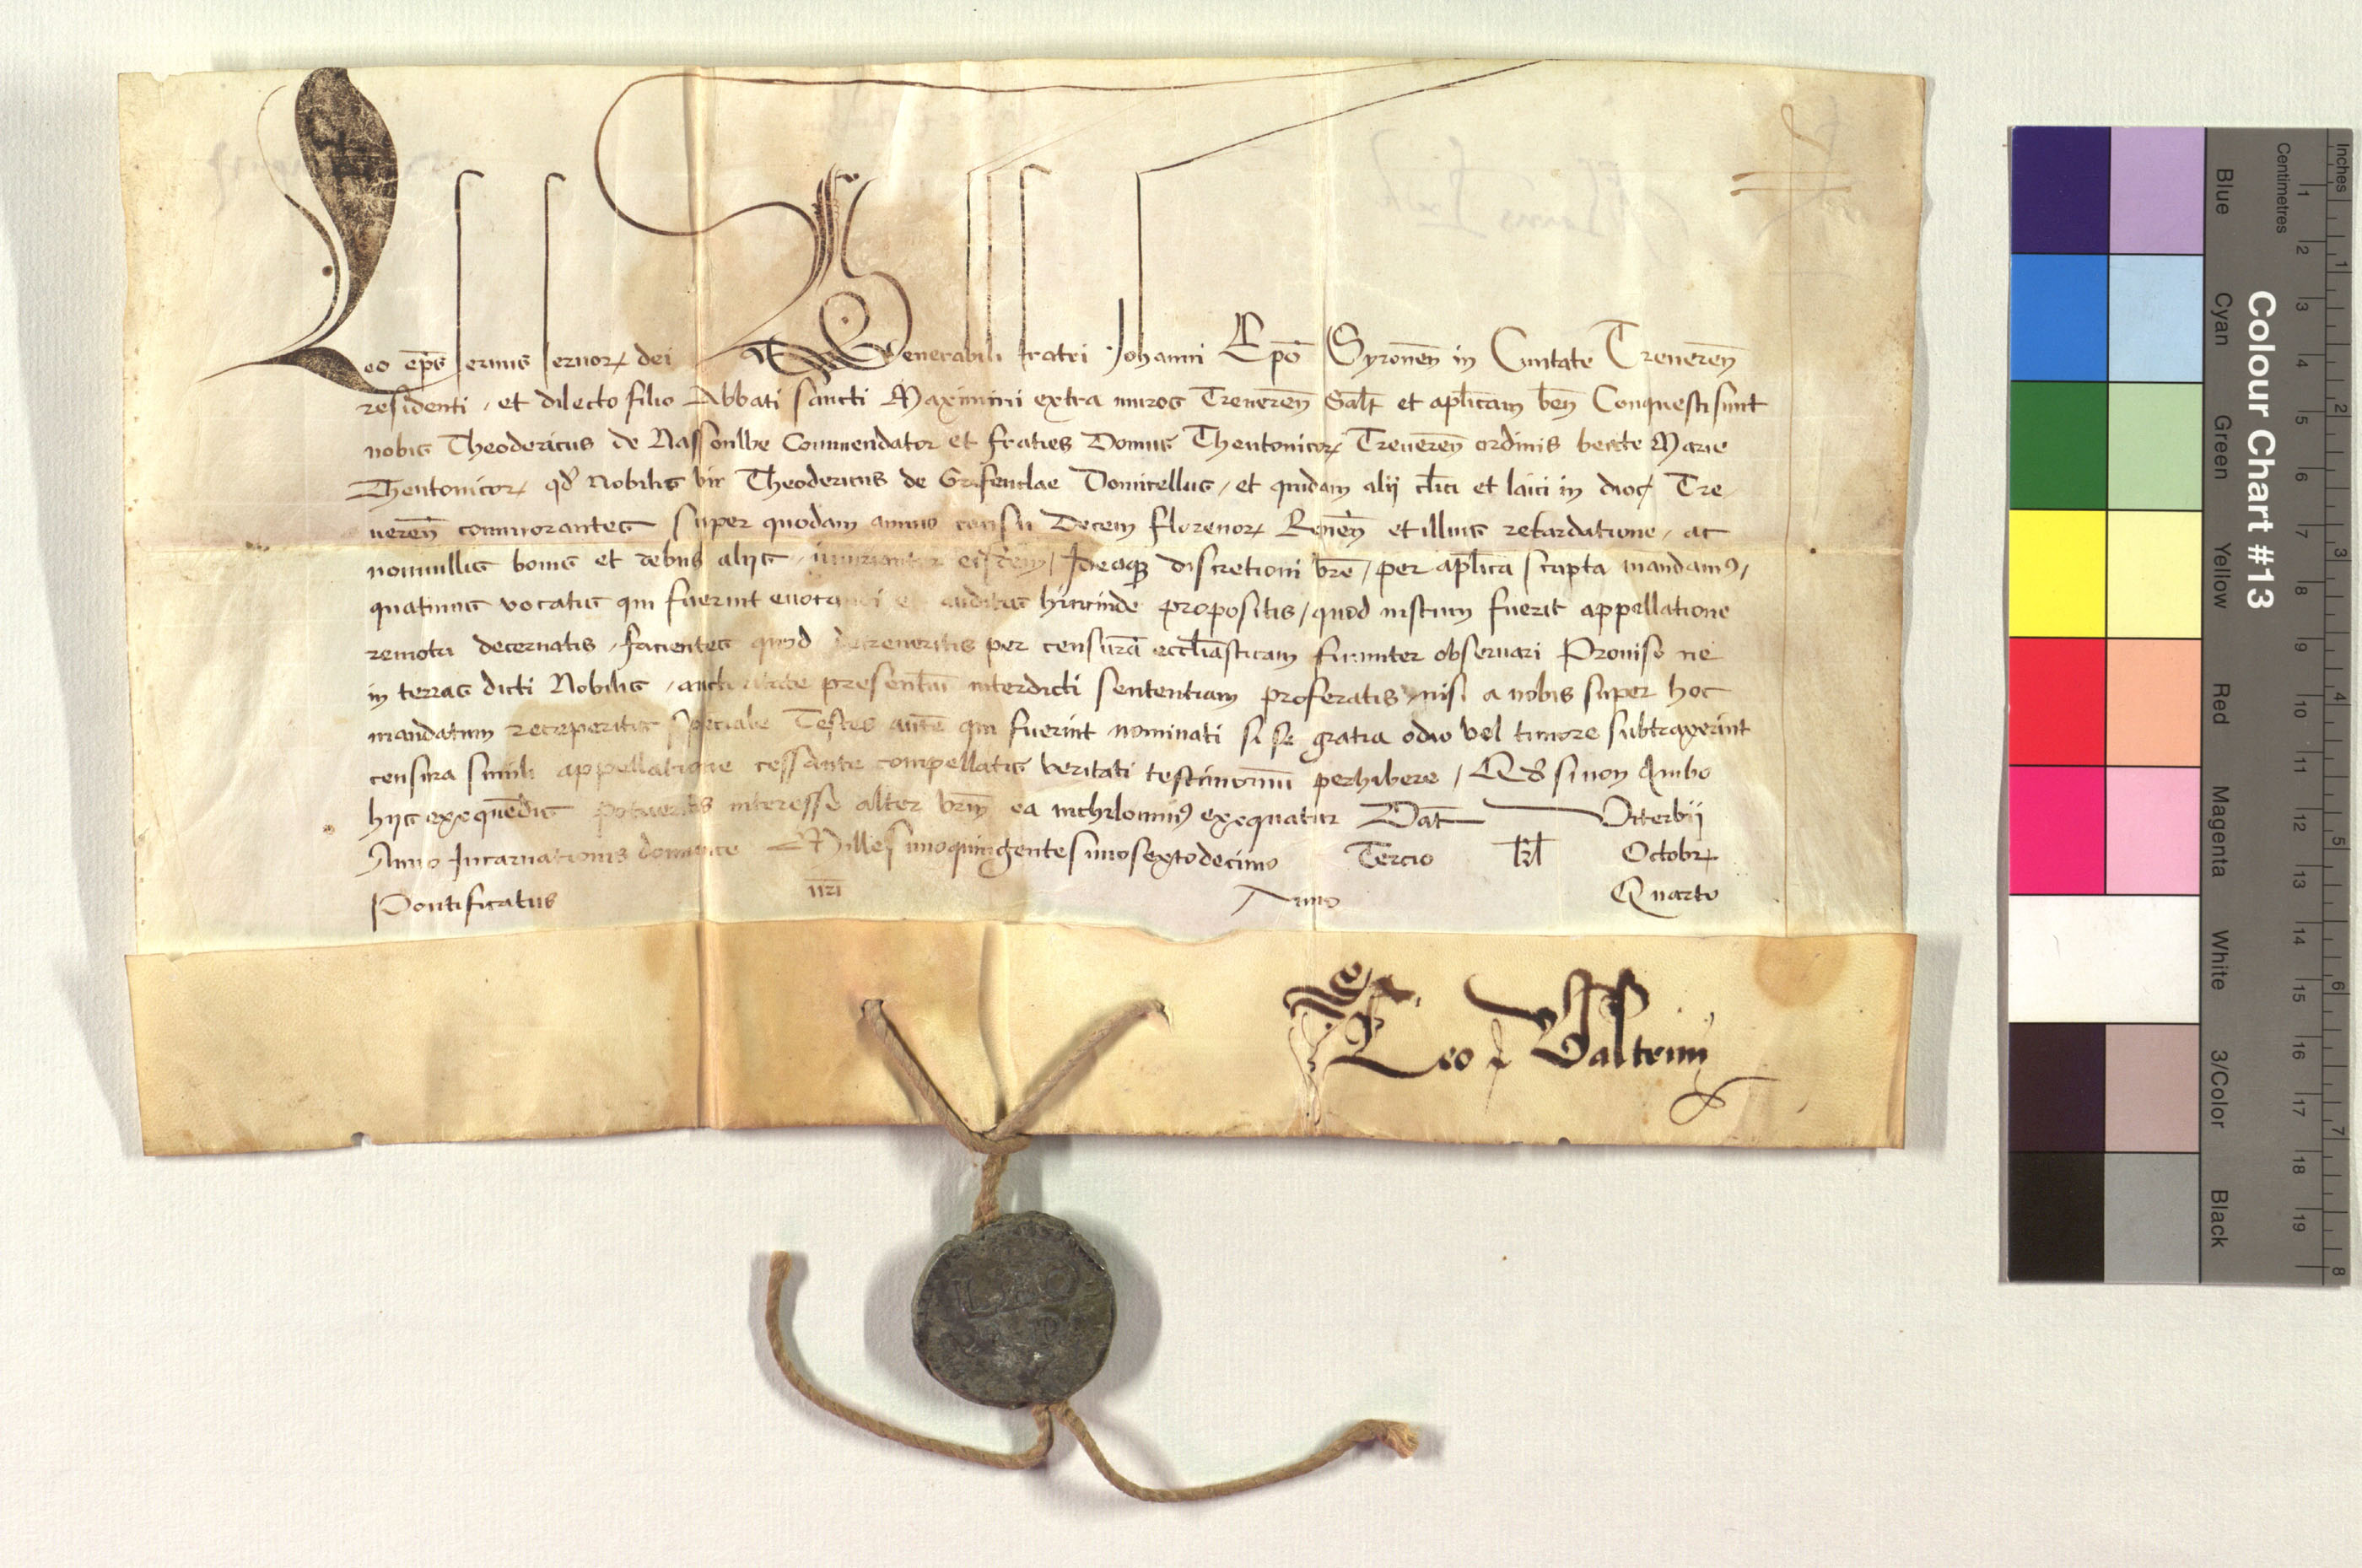 Leo ep̄s servus servorꝝ dei Venerabili fratri Johanni Ep̄o Syronen̄ in Civitate Treveren̄
residenti, et dilecto filio Abbati sancti Maximini extra muros Treveren̄ Sal̄t et ap̄licam ben̄ Conquesti sunt
nobis Theodericus de Commendator et fratres Domus Theutonicorꝝ Treveren̄ ordinis beate Marie
Theutonicorꝝ qd̄ Nobilis vir Theodericus de Domicellus, et quidam alij cl̄ici et laici in dioc̄ Tre-
veren̄ commorantes super quodam annuo censu Decem florenorꝝ Renen̄ et illius retardatione, ac
nonnullis bonis et rebus alijs, iniuriantur eisdem, Ideoqꝫ discretioni vr̄e, per ap̄lica scripta mandamꝰ,
quatinus vocatis qui fuerint evocandi et auditis hincinde propositis, quod iustum fuerit appellatione
remota decernatis, facientes quod decreveritis per censurā eccl̄iasticam firmiter observari Proviso ne
in terras dicti Nobilis, auctoritate presentiū interdicti sententiam proferatis, nisi a nobis super hoc
mandatum receperitis speciale Testes autē qui fuerint nominati si se gratia odio vel timore subtraxerint
censura simili appellatione cessante compellatis veritati testimoniū perhibere, Qd̄ si non Ambo
hijs exequēdis potueritis interesse alter vr̄m̄ ea nichilominꝰ exequatur Dat̄ Viterbij
Anno Incarnationis dominice Millesimoquingentesimosextodecimo Tercio kl̄ Octobrꝝ
Pontificatus nr̄i Anno Quarto
Leo d Valtrini
LEO
Colour Chart #13
Blue Cyan Green Yellow Red Magenta White 3/Color Black
Centimetres 1 2 3 4 5 6 7 8 9 10 11 12 13 14 15 16 17 18 19
Inches 1 2 3 4 5 6 7 8